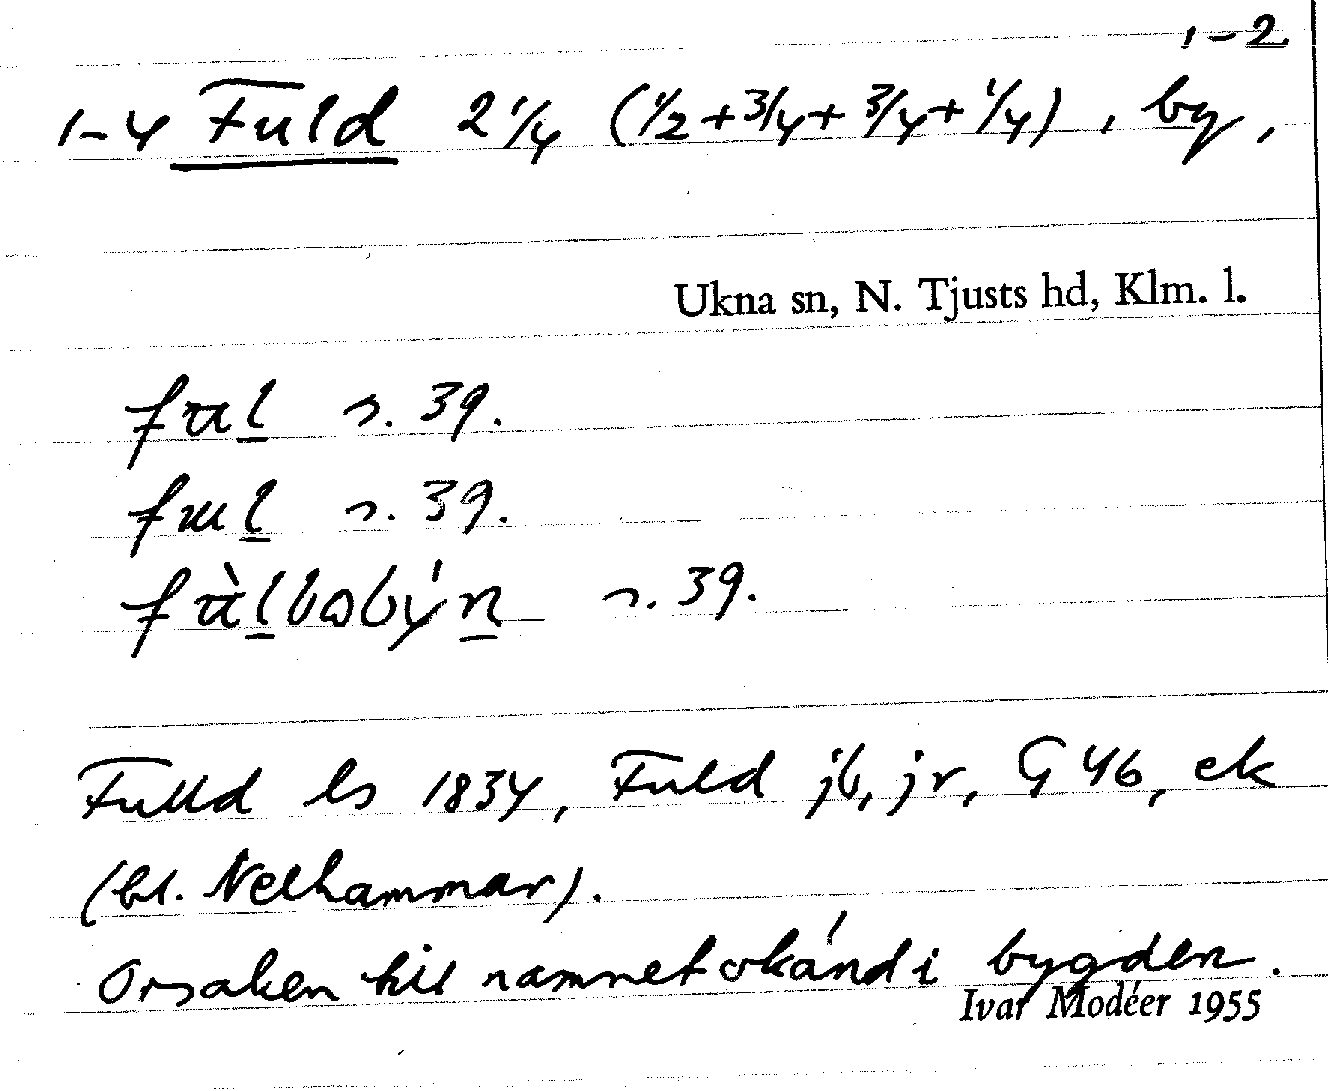 1-2
1-4 Fuld 2 1/4 (1/2+3/4+3/4+1/4), by,
Ukna sn, N. Tjusts hd, Klm. l.
s. 39.
s. 39.
s. 39.
Fulld ls 1834, Fuld jb, jr, G 46, ek
(bl. Nelhammar).
Orsaken till namnet okänd i bygden.
Ivar Modéer 1955